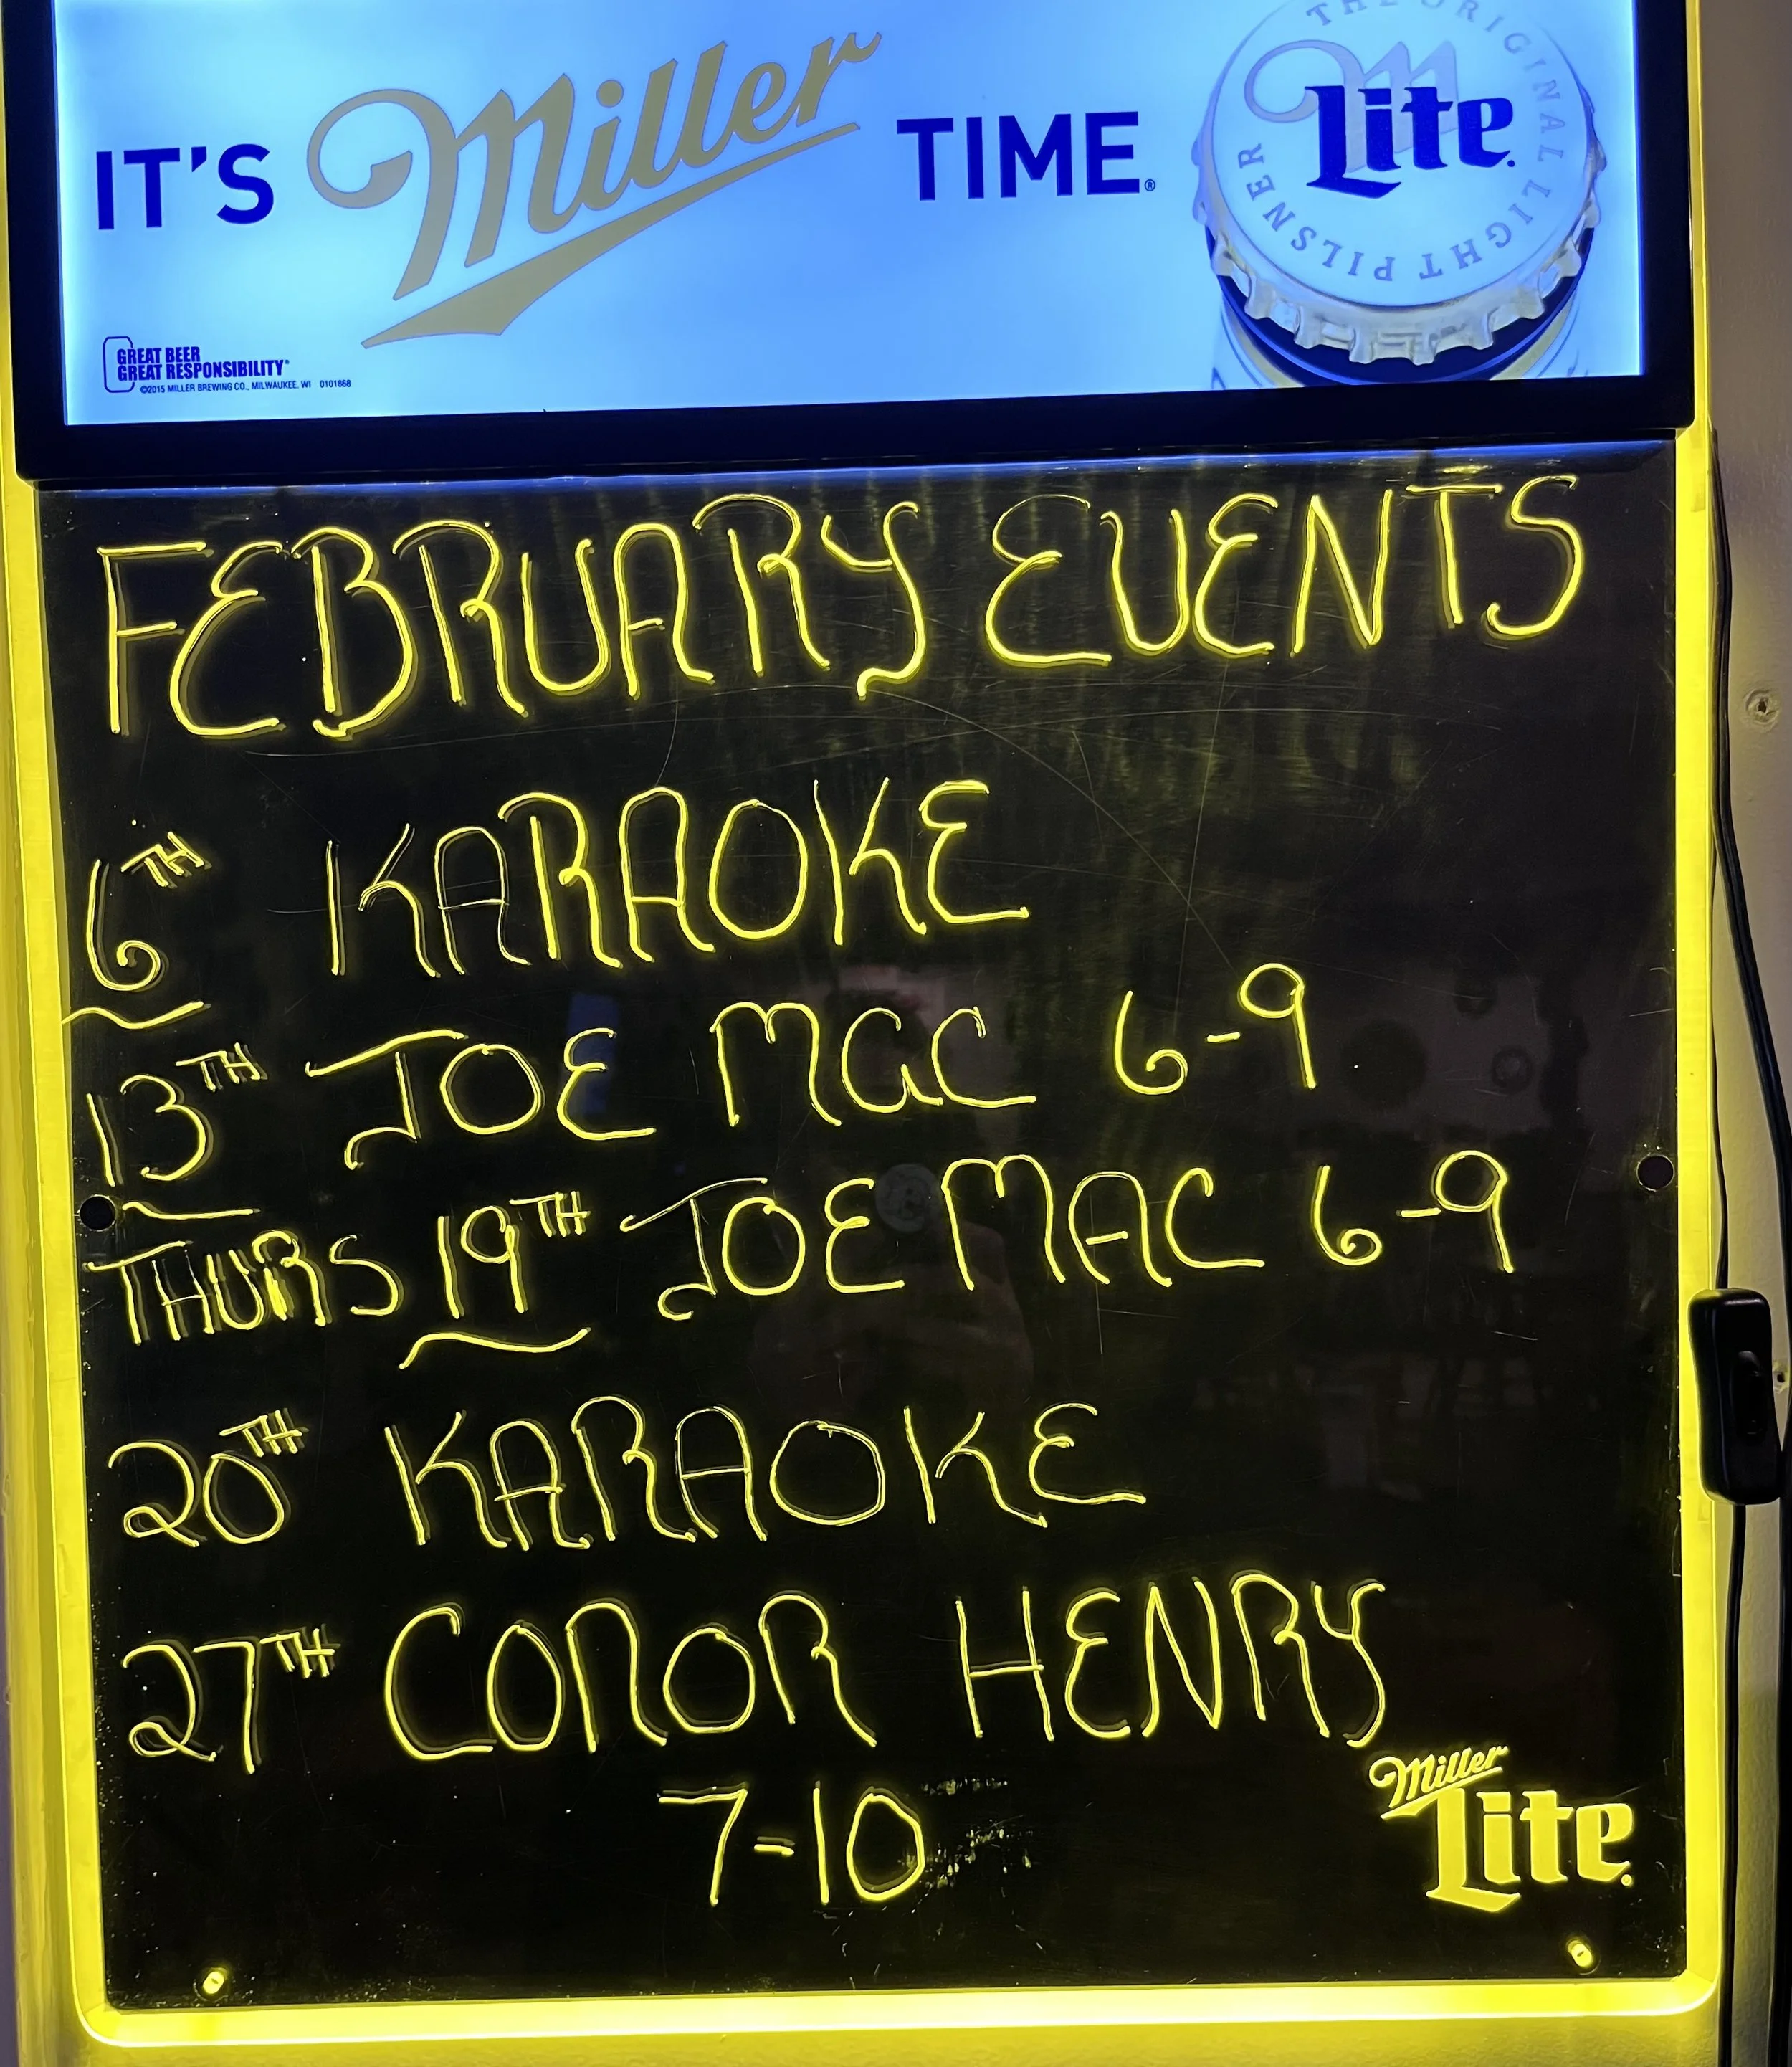 IT'S Miller TIME®
THE ORIGINAL LIGHT PILSNER
Lite
GREAT BEER
GREAT RESPONSIBILITY®
©2015 MILLER BREWING CO., MILWAUKEE, WI 0101868
FEBRUARY EVENTS
6TH KARAOKE
13TH JOE MAC 6-9
THURS 19TH JOE MAC 6-9
20TH KARAOKE
27TH CONOR HENRY
7-10
Miller
Lite